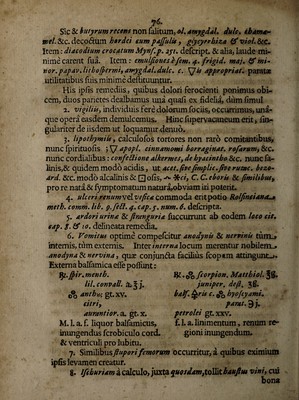 76.
Sic & butyrum recens non salitum, ol. amygdal. dulc. chamæ-
mel. &c. decoctum hordei cum passulis, glycyrrhiza & viol. &c.
Item: diacodium crocatum Mynf. p. 251. descript. & alia, laude mi-
nime carent sua. Item: emulsiones è sem. 4. frigid. maj. & mi-
nor. papav. lithospermi, amygdal. dulc. c. appropriat. paratæ
utilitatibus suis minime destituuntur.
His ipsis remediis, quibus dolori ferocienti ponimus obi-
cem, duos parietes dealbamus una quasi ex fidelia, dum simul
2. vigiliis, individuis ferè dolorum sociis, occurrimus, una-
que opera easdem demulcemus. Hinc supervacaneum erit, sin-
gulariter de iisdem ut loquamur denuò.
3. lipothymiis, calculosos tortores non rarò comitantibus,
nunc spirituosis apopl. cinnamomi borraginat. rosarum, &c.
nunc cordialibus: confectione alkermes, de hyacintho &c. nunc sa-
linis, & quidem modò acidis, ut acet. sive simplic. sive rutac. bezo-
ard. &c. modò alcalinis & C. C. ebore & similibus,
pro re nata & symptomatum natura, obviam iti poterit.
4. ulceri renum vel vesicæ commoda erit potio Rolfinciana
meth. comm. lib. 9. sect. 4. cap. 5. num. 6. descripta.
5. ardori urinæ & stranguriæ succurrunt ab eodem loco cit.
cap. 8. & 10. delineata remedia.
6. Vomitus optimè compescitur anodynis & nervinis tùm
internis, tùm externis. Inter interna locum merentur nobilem
anodyna & nervina, quæ conjuncta facilius scopum attingunt.
Externa balsamica esse possunt:
spir. menth.
lil. convall. a.
anth. gt. xv.
citri,
aurantior. a. gt. x.
M. l. a. f. liquor balsamicus,
inungendus scrobiculo cord.
& ventriculi pro lubitu.
scorpion. Matthiol.
juniper. dest.
hyoscyami.
parat.
petrolei gt. xxv.
f. l. a. linimentum, renum re-
gioni inungendum.
7. Similibus stupori femorum occurritur, à quibus eximium
ipsis levamen creatur.
8. Ischuriam à calculo, juxta quosdam, tollit haustus vini, cui
bona